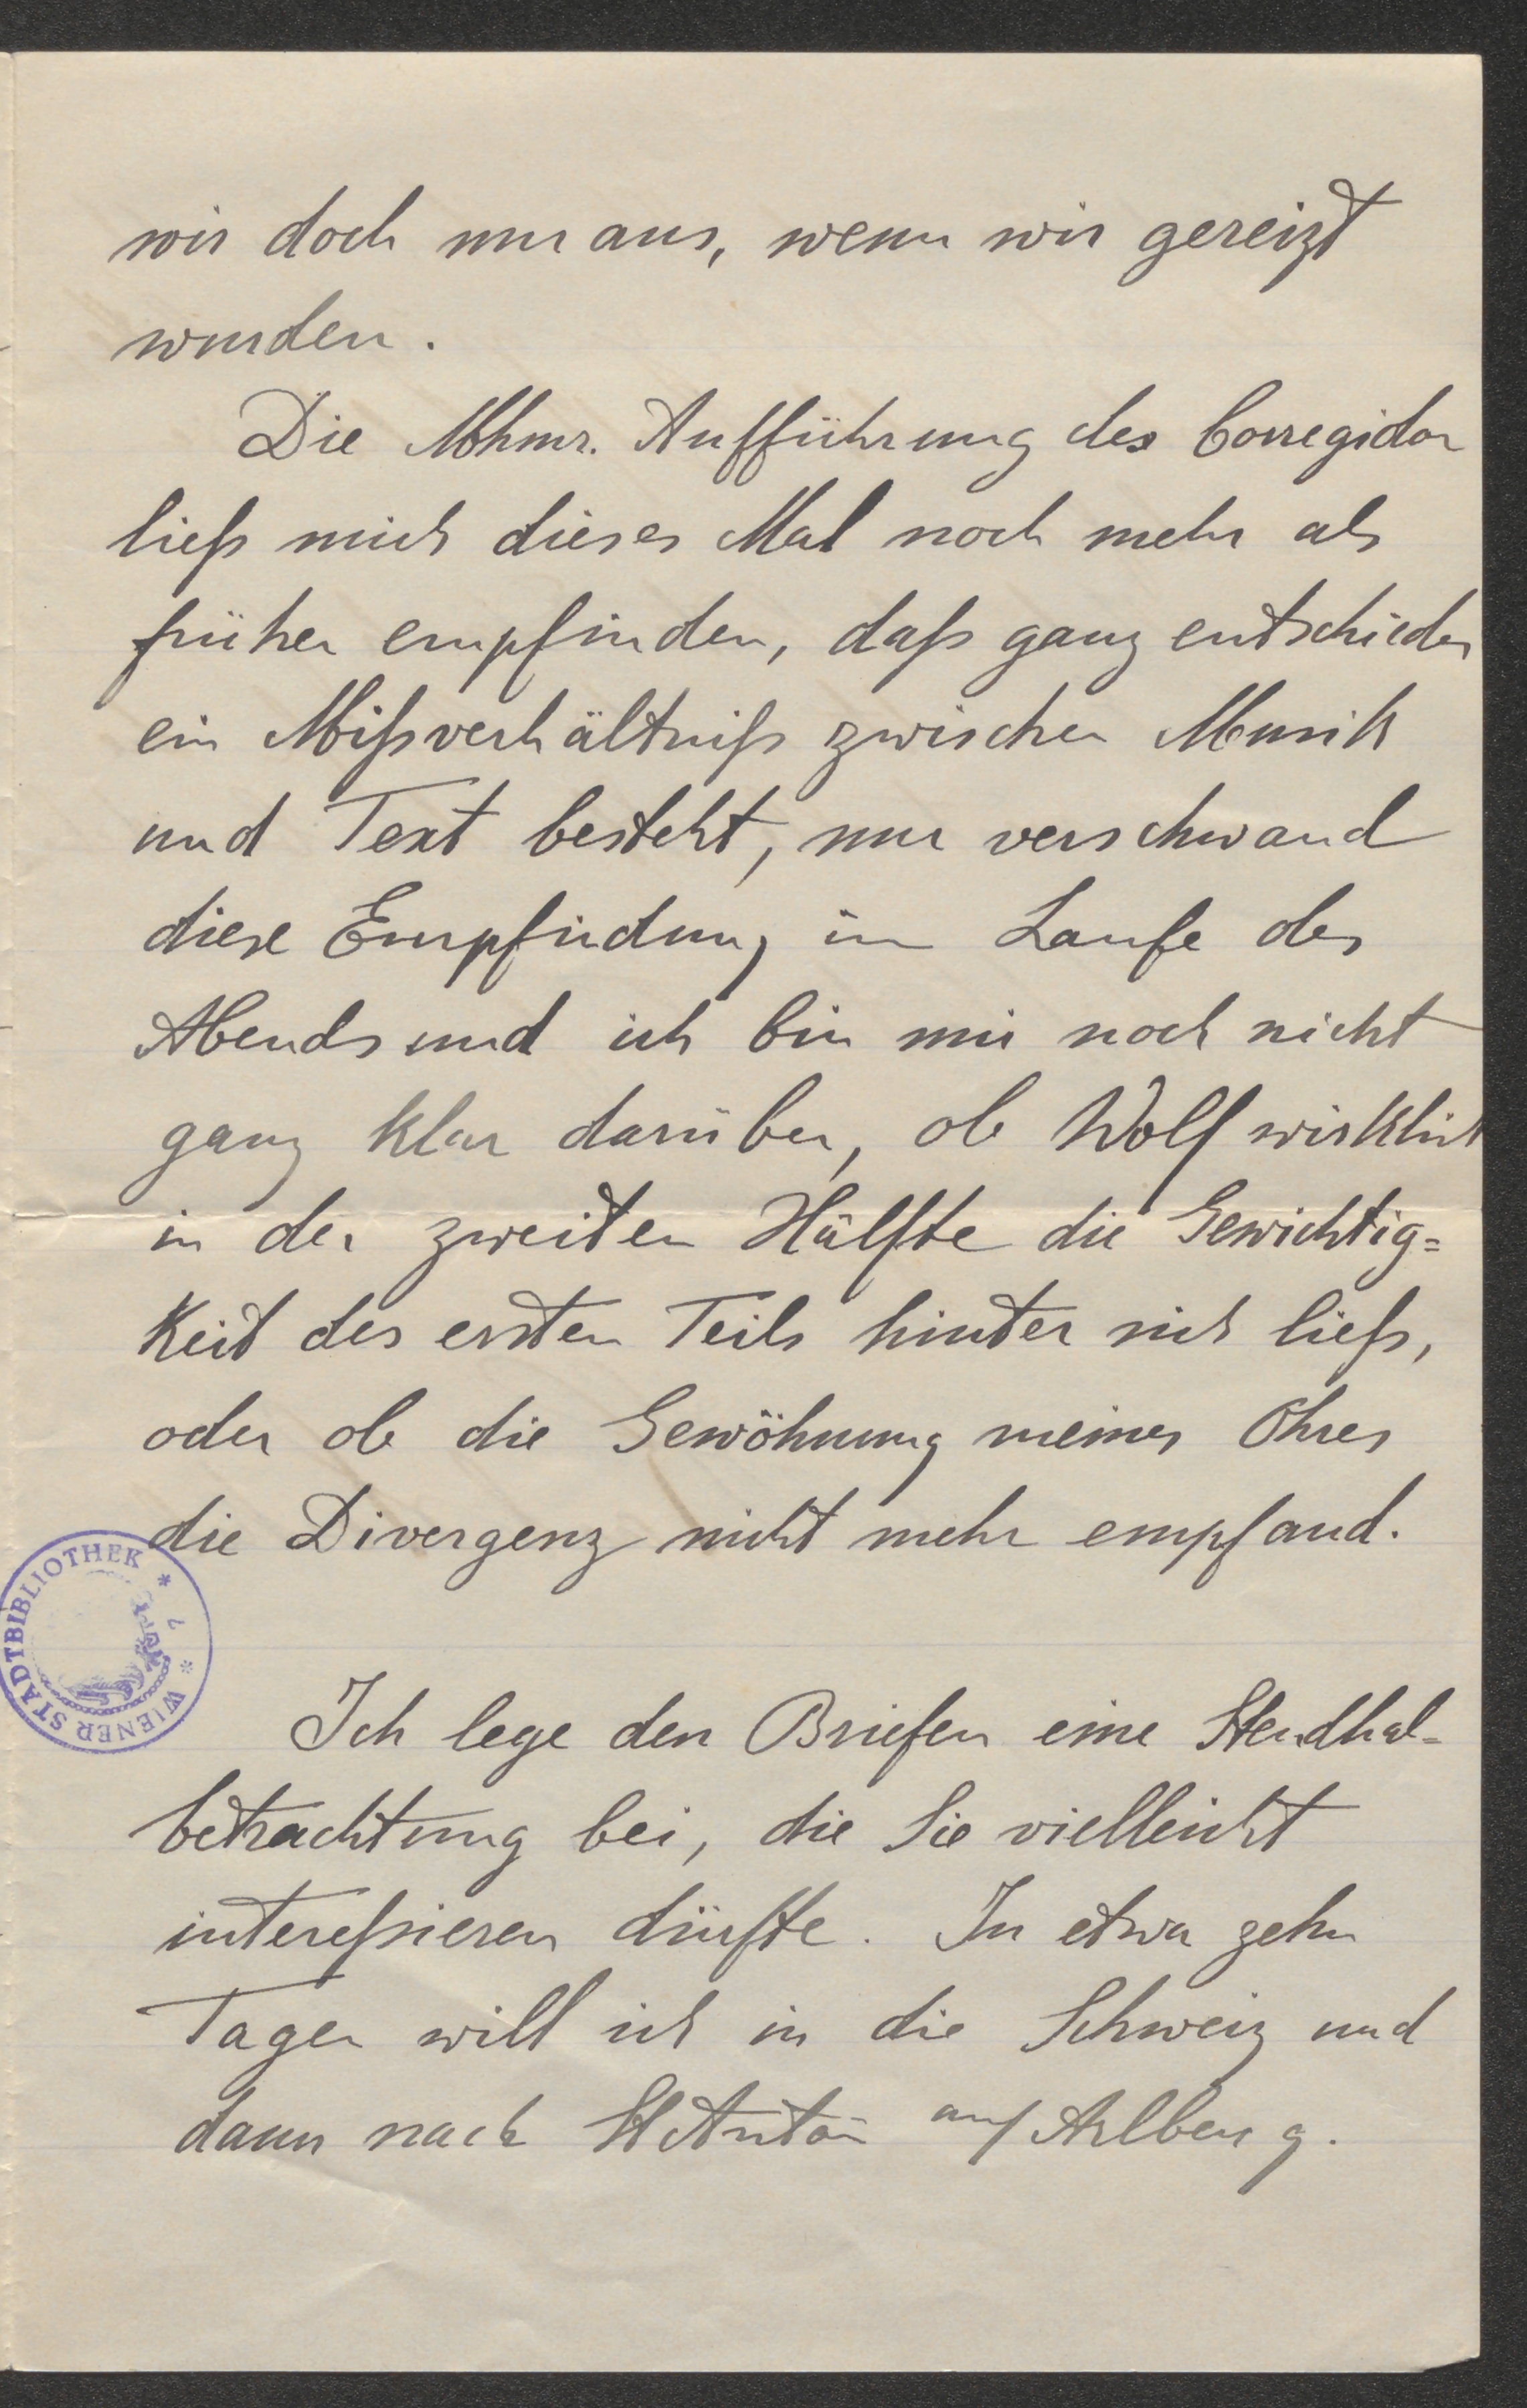 wir doch nur aus, wenn wir gereizt
wurden.
Die Mhmr. Aufführung des Corregidor
ließ mich dieses Mal noch mehr als
früher empfinden, daß ganz entschieden
ein Mißverhältniß zwischen Musik
und Text besteht, nur verschwand
diese Empfindung im Laufe des
Abends und ich bin mir noch nicht
ganz klar darüber, ob Wolf wirklich
in der zweiten Hälfte die Gewichtig=
keit des ersten Teils hinter sich ließ,
oder ob die Gewöhnung meines Ohres
die Divergenz nicht mehr empfand.
WIENER STADTBIBLIOTHEK
Ich lege den Briefen eine Stendhal=
betrachtung bei, die Sie vielleicht
intereßieren dürfte. In etwa zehn
Tagen will ich in die Schweiz und
dann nach St Anton auf Arlberg.